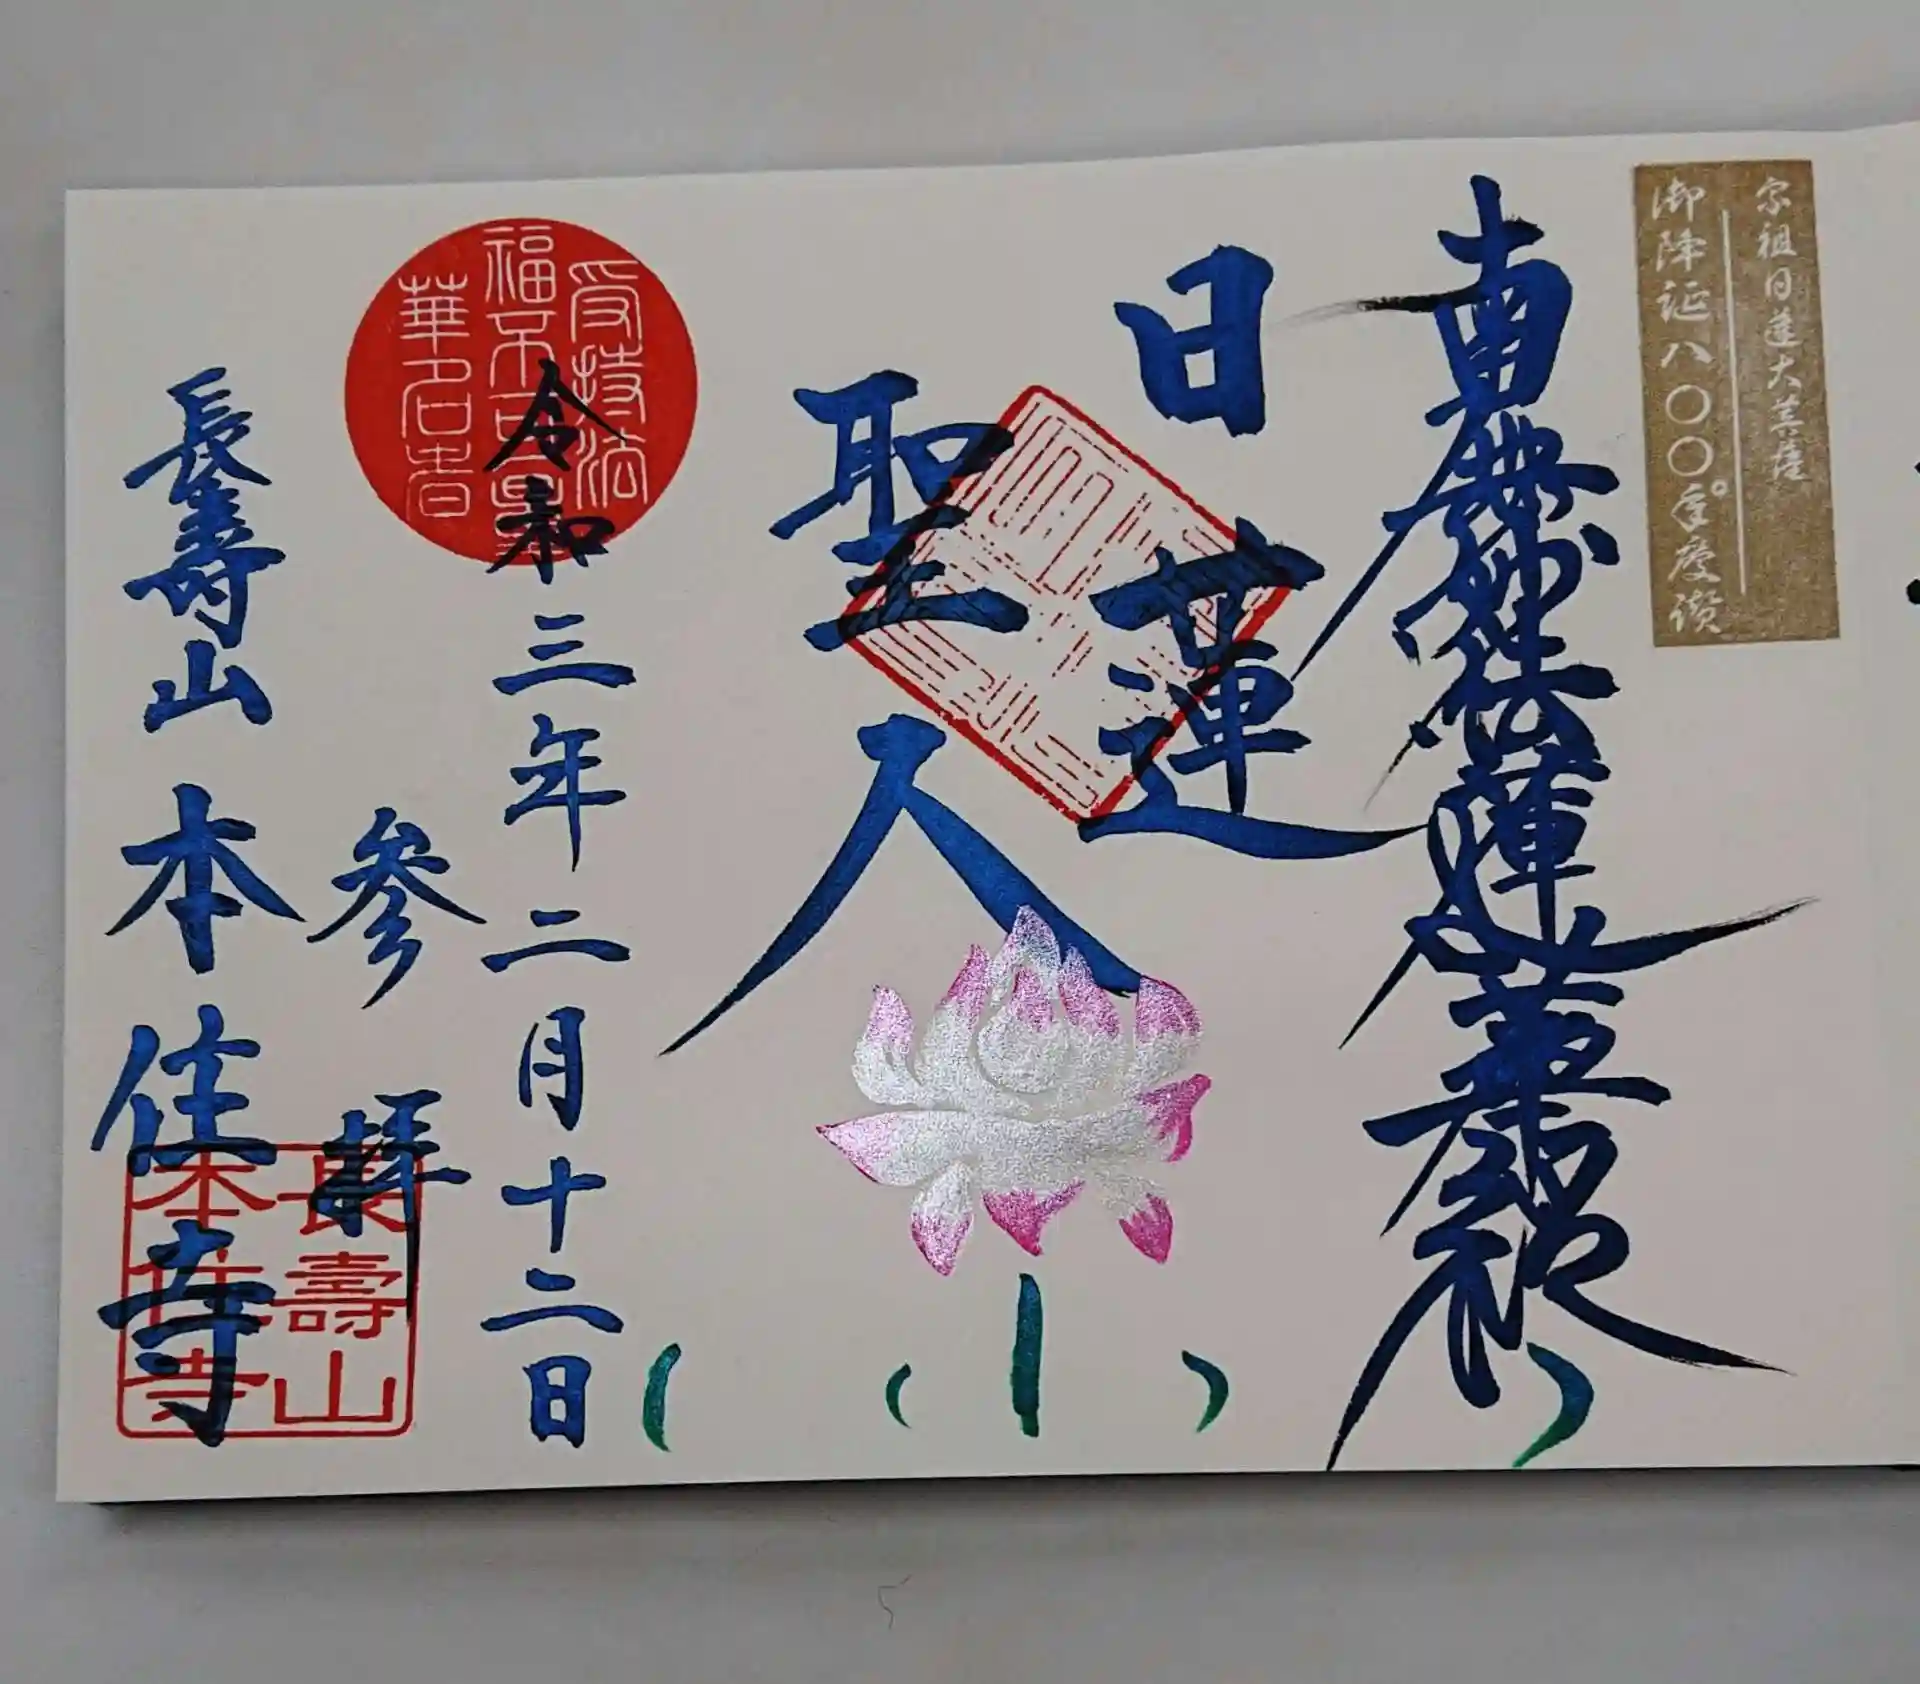 宗祖日蓮大菩薩
御降誕八〇〇年慶讃
南無妙法蓮華経
日蓮
聖人
受持法
華名者
福不可量
令和三年二月十二日
参拝
長壽山本住寺
長壽山
本住寺